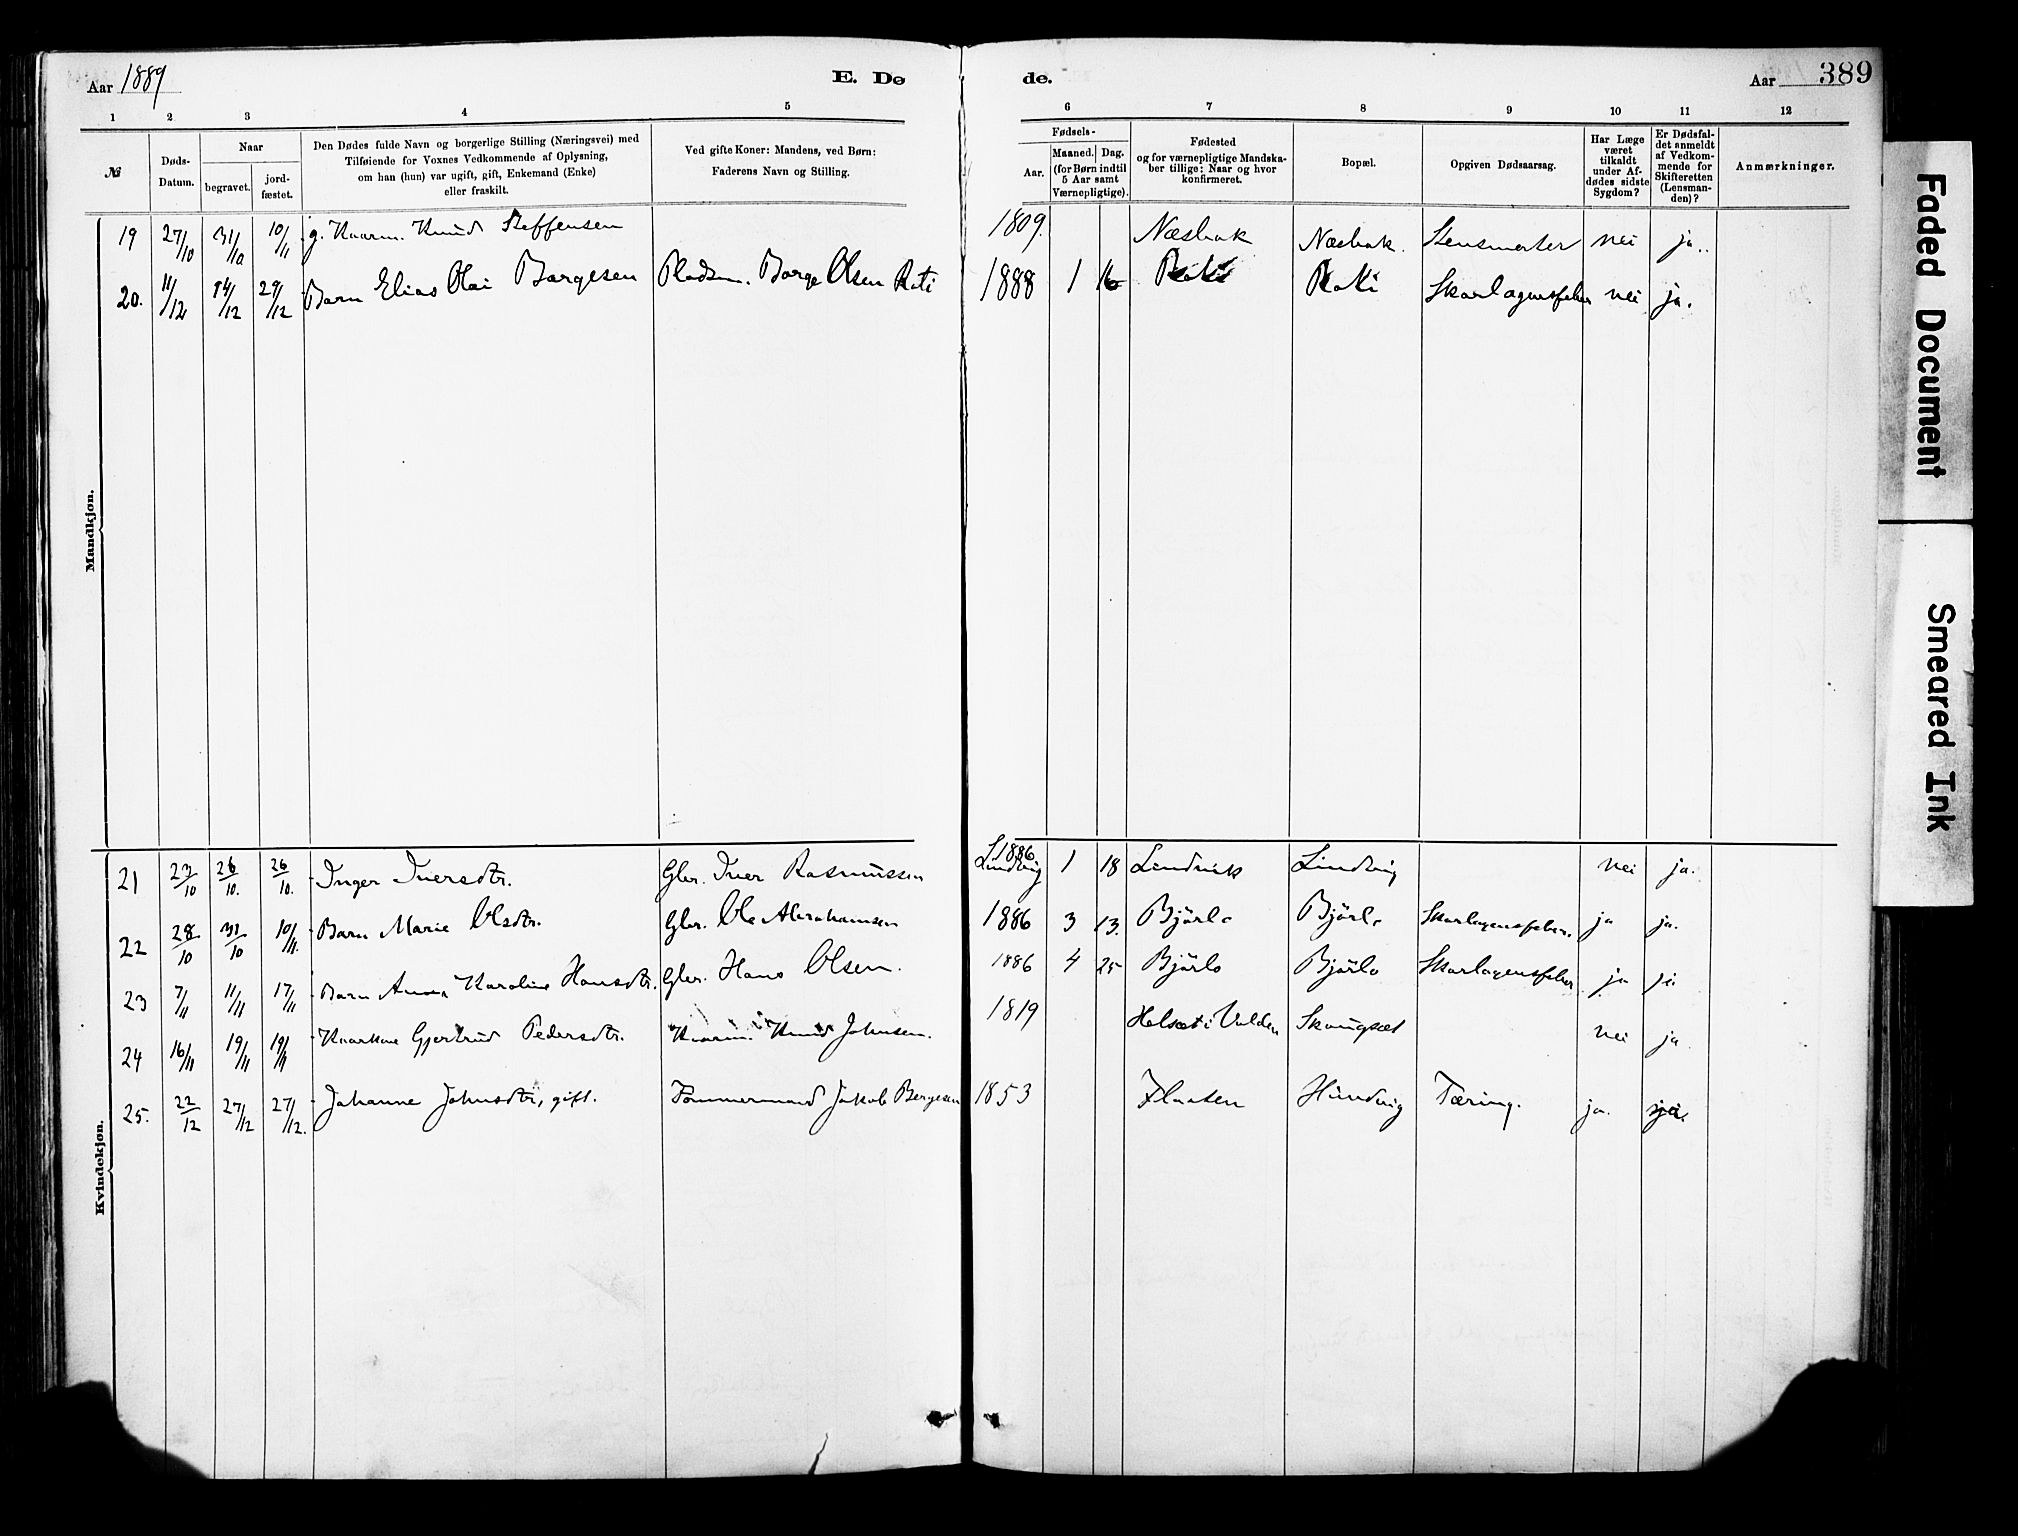 Aar 1889
E. Dø
de.
Aar
389
1 2 3 4 5 6 7 8 9 10 11 12
№
Døds-
Datum.
Naar
begravet.
jord-
fæstet.
Den Dødes fulde Navn og borgerlige Stilling (Næringsvei) med
Tilføiende for Voxnes Vedkommende af Oplysning,
om han (hun) var ugift, gift, Enkemand (Enke)
eller fraskilt.
Ved gifte Koner: Mandens, ved Børn:
Faderens Navn og Stilling.
Fødsels-
Aar.
Maaned. Dag.
(for Børn indtil
5 Aar samt
Værnepligtige).
Fødested
og for værnepligtige Mandska-
ber tillige: Naar og hvor
konfirmeret.
Bopæl.
Opgiven Dødsaarsag.
Har Læge
været
tilkaldt
under Af-
dødes sidste
Sygdom?
Er Dødsfal-
det anmeldt
af Vedkom-
mende for
Skifteretten
(Lensman-
den)?
Anmærkninger.
Mandkjøn.
19 27/10 31/10 10/11 g. Kaarm. Knud Steffensen 1809. Næsbak Næsbak. Stensmerter nei ja.
20. 11/12 14/12 29/12 Barn Elias Olai Børgesen Pladsm. Børge Olsen Roti 1888 1 16 Roti Roti Skarlagensfeber nei ja.
Kvindekjøn.
21 23/10 26/10. 26/10. Inger Iversdtr. Gbr. Iver Rasmussen 1886 Lindvig 1 18 Lindvik Lindvig nei ja.
22 28/10 31/10 10/11. Barn Marie Olsdtr. Gbr. Ole Abrahamsen 1886 3 13. Bjørlo Bjørlo Skarlagensfeber. ja ja.
23 7/11 11/11 17/11 Barn Anna Karoline Hansdtr. Gbr. Hans Olsen. 1886 4 25 Bjørlo Bjørlo Skarlagensfeber ja ja
24 16/11 19/11 19/11 Kaarkone Gjertrud Pedersdtr. Kaarm. Knud Johnsen. 1819 Helset i Volden Skaugset nei ja
25. 22/12 27/12 27/12. Johanne Johnsdtr, gift. Tømmermand Jakob Børgesen 1853 Flaaten Hundvig Tæring. ja. ja.
Faded Document
Smeared Ink